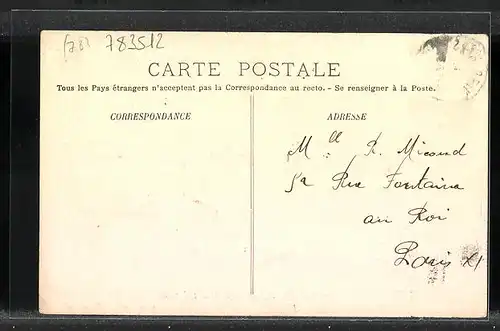 (78) 783512
CARTE POSTALE
Tous les Pays étrangers n'acceptent pas la Correspondance au recto. - Se renseigner à la Poste.
CORRESPONDANCE
ADRESSE
Mlle R. Micaud
52 Rue Fontaine
au Roi
Paris XI